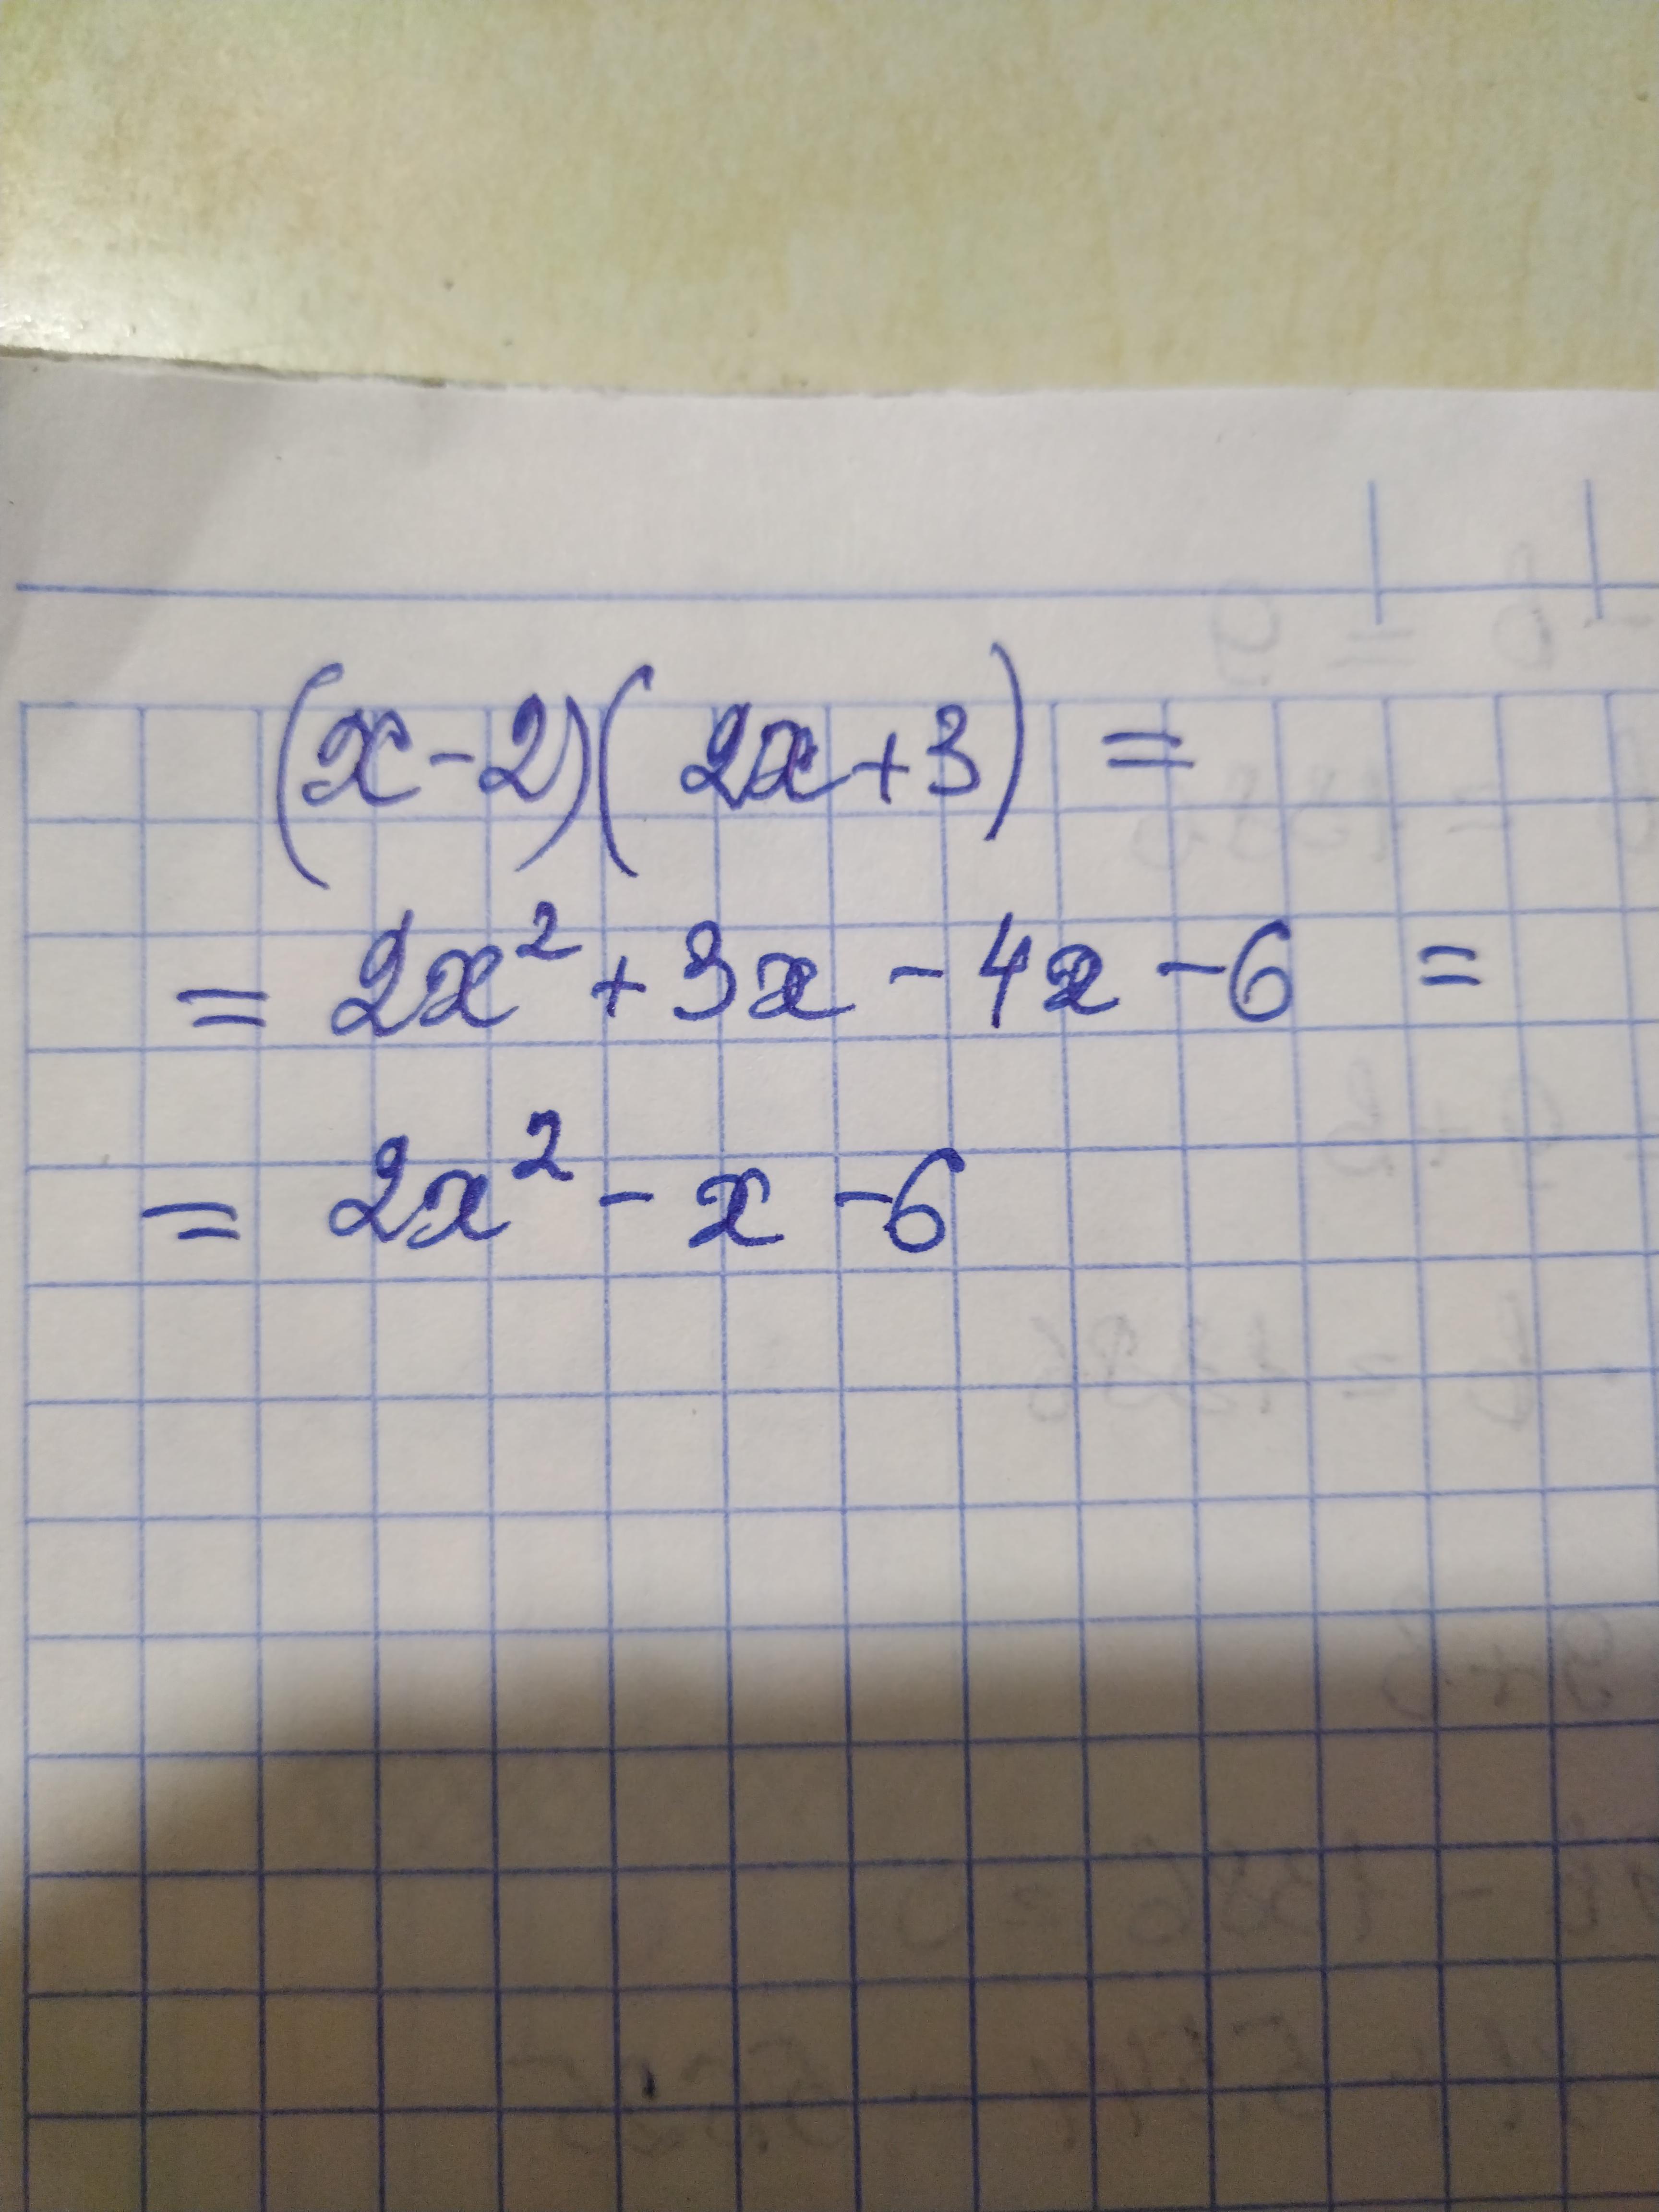 (x-2)(2x+3) =
= 2x² + 3x - 4x - 6 =
= 2x² - x - 6